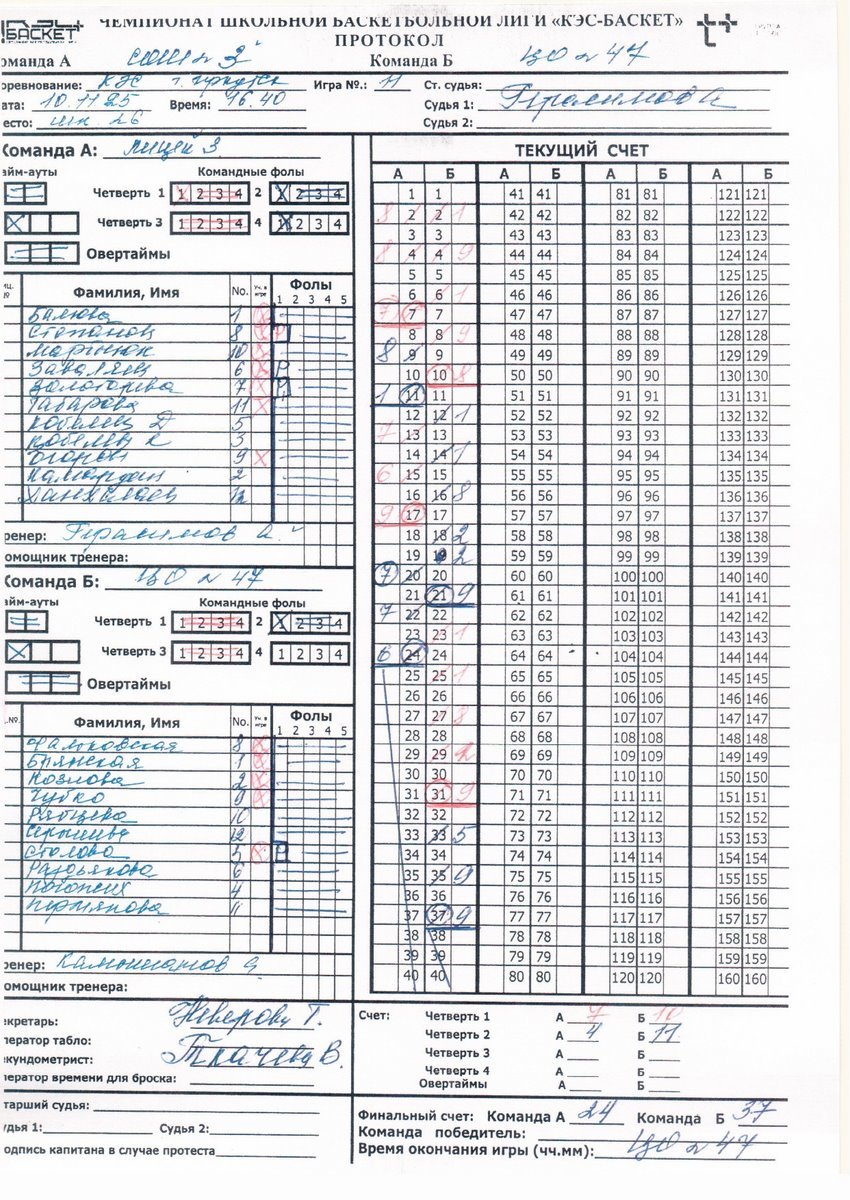 БАСКЕТ ЧЕМПИОНАТ ШКОЛЬНОЙ БАСКЕТБОЛЬНОЙ ЛИГИ «КЭС-БАСКЕТ»
ПРОТОКОЛ
оманда А СОШ № 3 Команда Б ЦО № 47
оревнование: КЭС г. Иркутск Игра №.: 11 Ст. судья:
ата: 10.11.25 Время: 16.40 Судья 1: Герасимов А
есто: шк. 26 Судья 2:
Команда А: лицей 3
айм-ауты Командные фолы
Четверть 1 1 2 3 4 2 1 2 3 4
Четверть 3 1 2 3 4 4 1 2 3 4
Овертаймы
Фамилия, Имя No. Уч. в игре Фолы 1 2 3 4 5
Балюва 1
Степанов 8
Мартынюк 10
Заваляец 6 P
Золоторева 7 P
Табарова 11
Кобелев Д 5
Кобелев К 3
9
2
12
ренер: Герасимов А.
омощник тренера:
Команда Б: ЦО № 47
айм-ауты Командные фолы
Четверть 1 1 2 3 4 2 1 2 3 4
Четверть 3 1 2 3 4 4 1 2 3 4
Овертаймы
Фамилия, Имя No. Уч. в игре Фолы 1 2 3 4 5
Фальковская 8
Брянская 1
Козлова 2
Чупко 9
Рябцева 10
12
Столова 5 P
Раздьякова 6
4
Пермянова 11
ренер:
омощник тренера:
ТЕКУЩИЙ СЧЕТ
А Б А Б А Б А Б
1 1 41 41 81 81 121 121
8 2 2 1 42 42 82 82 122 122
3 3 43 43 83 83 123 123
8 4 4 9 44 44 84 84 124 124
5 5 45 45 85 85 125 125
6 6 1 46 46 86 86 126 126
7 7 7 47 47 87 87 127 127
8 8 9 48 48 88 88 128 128
8 9 9 49 49 89 89 129 129
10 10 8 50 50 90 90 130 130
1 11 11 51 51 91 91 131 131
12 12 1 52 52 92 92 132 132
7 13 13 53 53 93 93 133 133
14 14 1 54 54 94 94 134 134
6 15 15 55 55 95 95 135 135
16 16 8 56 56 96 96 136 136
9 17 17 57 57 97 97 137 137
18 18 2 58 58 98 98 138 138
19 19 2 59 59 99 99 139 139
7 20 20 60 60 100 100 140 140
21 21 9 61 61 101 101 141 141
7 22 22 62 62 102 102 142 142
23 23 1 63 63 103 103 143 143
6 24 24 64 64 104 104 144 144
25 25 1 65 65 105 105 145 145
26 26 66 66 106 106 146 146
27 27 8 67 67 107 107 147 147
28 28 68 68 108 108 148 148
29 29 2 69 69 109 109 149 149
30 30 70 70 110 110 150 150
31 31 9 71 71 111 111 151 151
32 32 72 72 112 112 152 152
33 33 5 73 73 113 113 153 153
34 34 74 74 114 114 154 154
35 35 9 75 75 115 115 155 155
36 36 76 76 116 116 156 156
37 37 9 77 77 117 117 157 157
38 38 78 78 118 118 158 158
39 39 79 79 119 119 159 159
40 40 80 80 120 120 160 160
екретарь: Неверову Т.
ператор табло:
екундометрист: Ткачеву В.
ператор времени для броска:
тарший судья:
удья 1: Судья 2:
одпись капитана в случае протеста
Счет: Четверть 1 А 7 Б 10
Четверть 2 А 4 Б 11
Четверть 3 А Б
Четверть 4 А Б
Овертаймы А Б
Финальный счет: Команда А 24 Команда Б 37
Команда победитель: ЦО № 47
Время окончания игры (чч.мм):